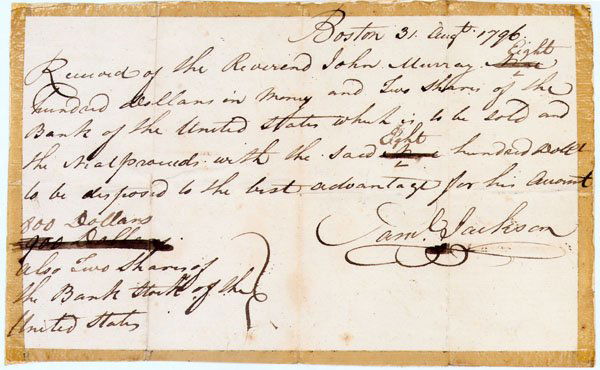 Boston 31. Augt. 1796.
Received of the Reverend John Murray Eight
hundred dollars in money and Two Shares of the
Bank of the United States which is to be sold and
the Neat proceeds with the said Eight hundred Dolls
to be disposed to the best advantage for his Account
Saml. Jackson
800 Dollars
900 Dollars
also Two Shares of
the Bank Stock of the
United States